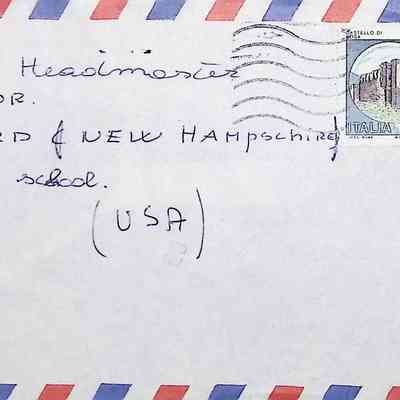 CASTELLO DI
ITALIA
Headmaster
OR.
RD ( NEW HAMPSCHIRE)
school.
(USA)